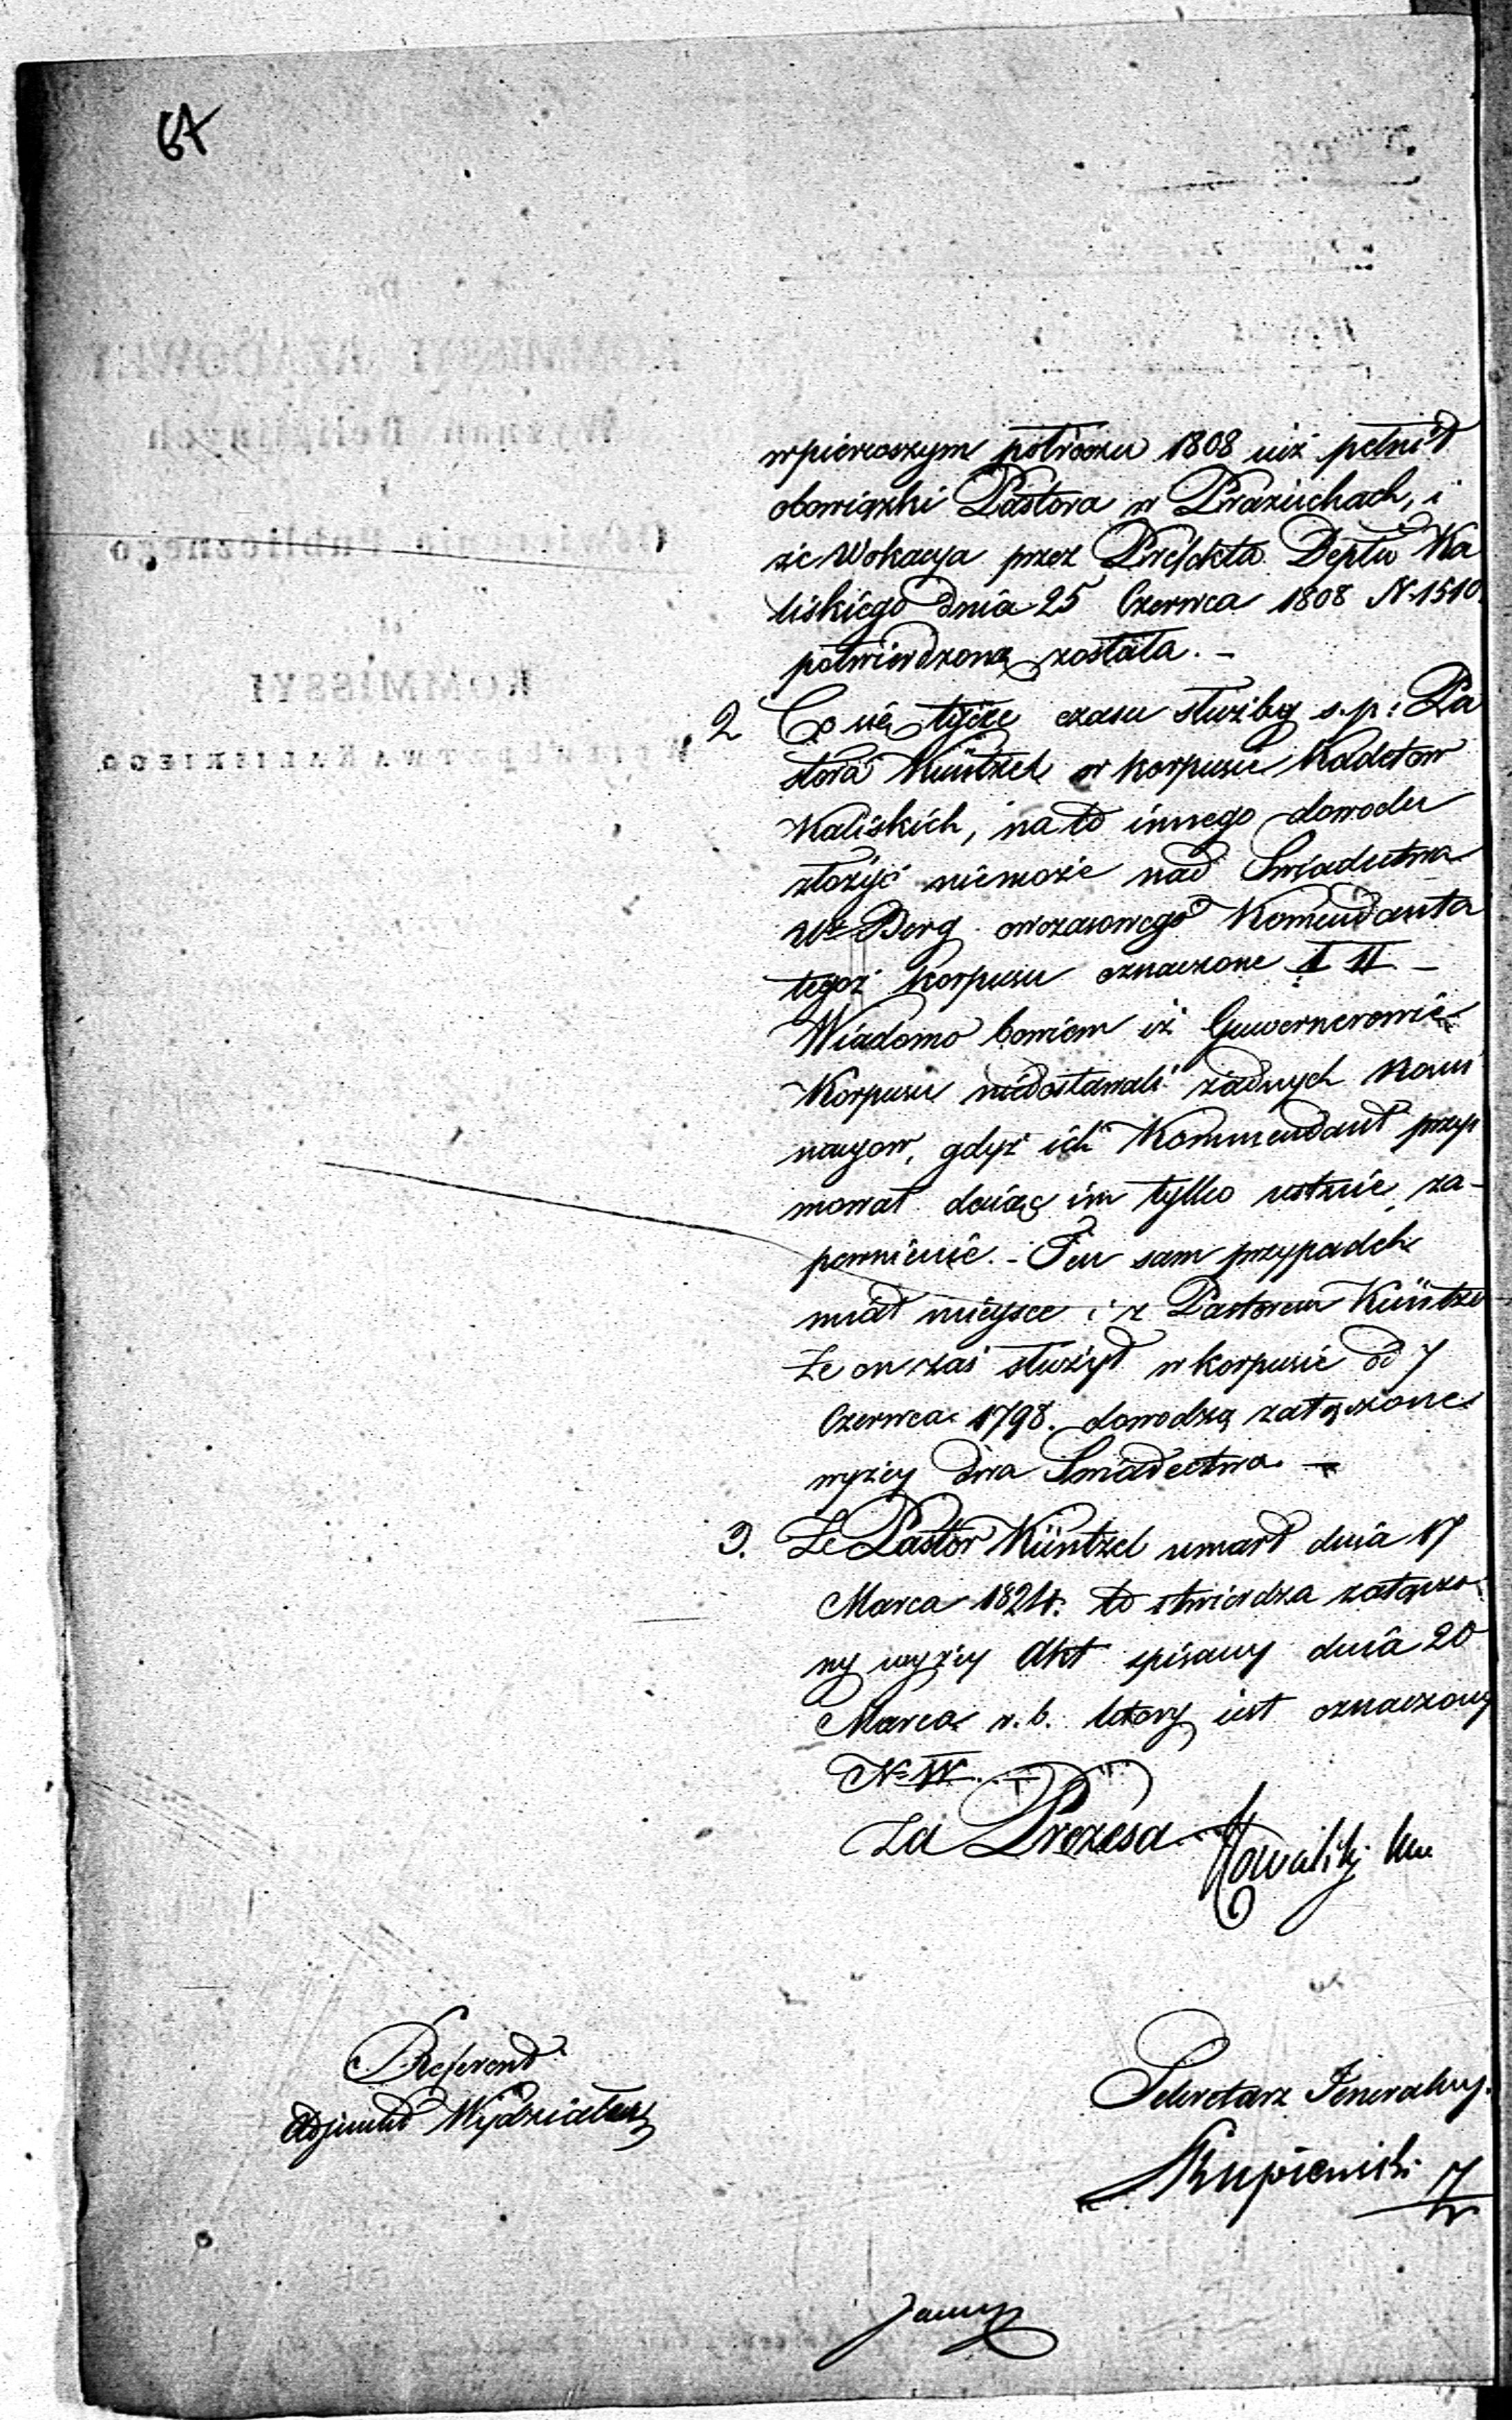 67
w pierwszym półroczu 1808 iuż pełnił
obowiązki Pastora w Prażuchach, i
że Wokacya przez Prefekta Deptu Ka
liskiego dnia 25 Czerwca 1808 N. 1510
potwierdzoną została. –
2 Co się tycze czasu służby s. p: Pa
stora Küntzel w korpusie Kadetow
Kaliskich, na to innego dowodu
złożyć niemoże nad Swiadectwa
Wo Berg owczasowego Komendanta
tegoż korpusu oznaczone I II –
Wiadomo bowiem iż Guwernerowie
Korpusu niedostawali żadnych Nomi
nacyow, gdyż ich Kommendant przyi
mował daiąc im tylko ustnie, za-
pewnienie. – Ten sam przypadek
miał mieysce i z Pastorem Küntze
Że on zaś służył w korpusie od 7
Czerwca 1798. dowodzą załączone
wyżey dwa Swiadectwa. –
3. Że Pastor Küntzel umarł dnia 17
Marca 1824. to stwierdza załączo
ny wyżey Akt spisany dnia 20
Marca r. b. ktory iest oznaczony
No IV. –
Za Prezesa
Referent
Adjunkt Wydziału
Sekretarz Jeneralny.